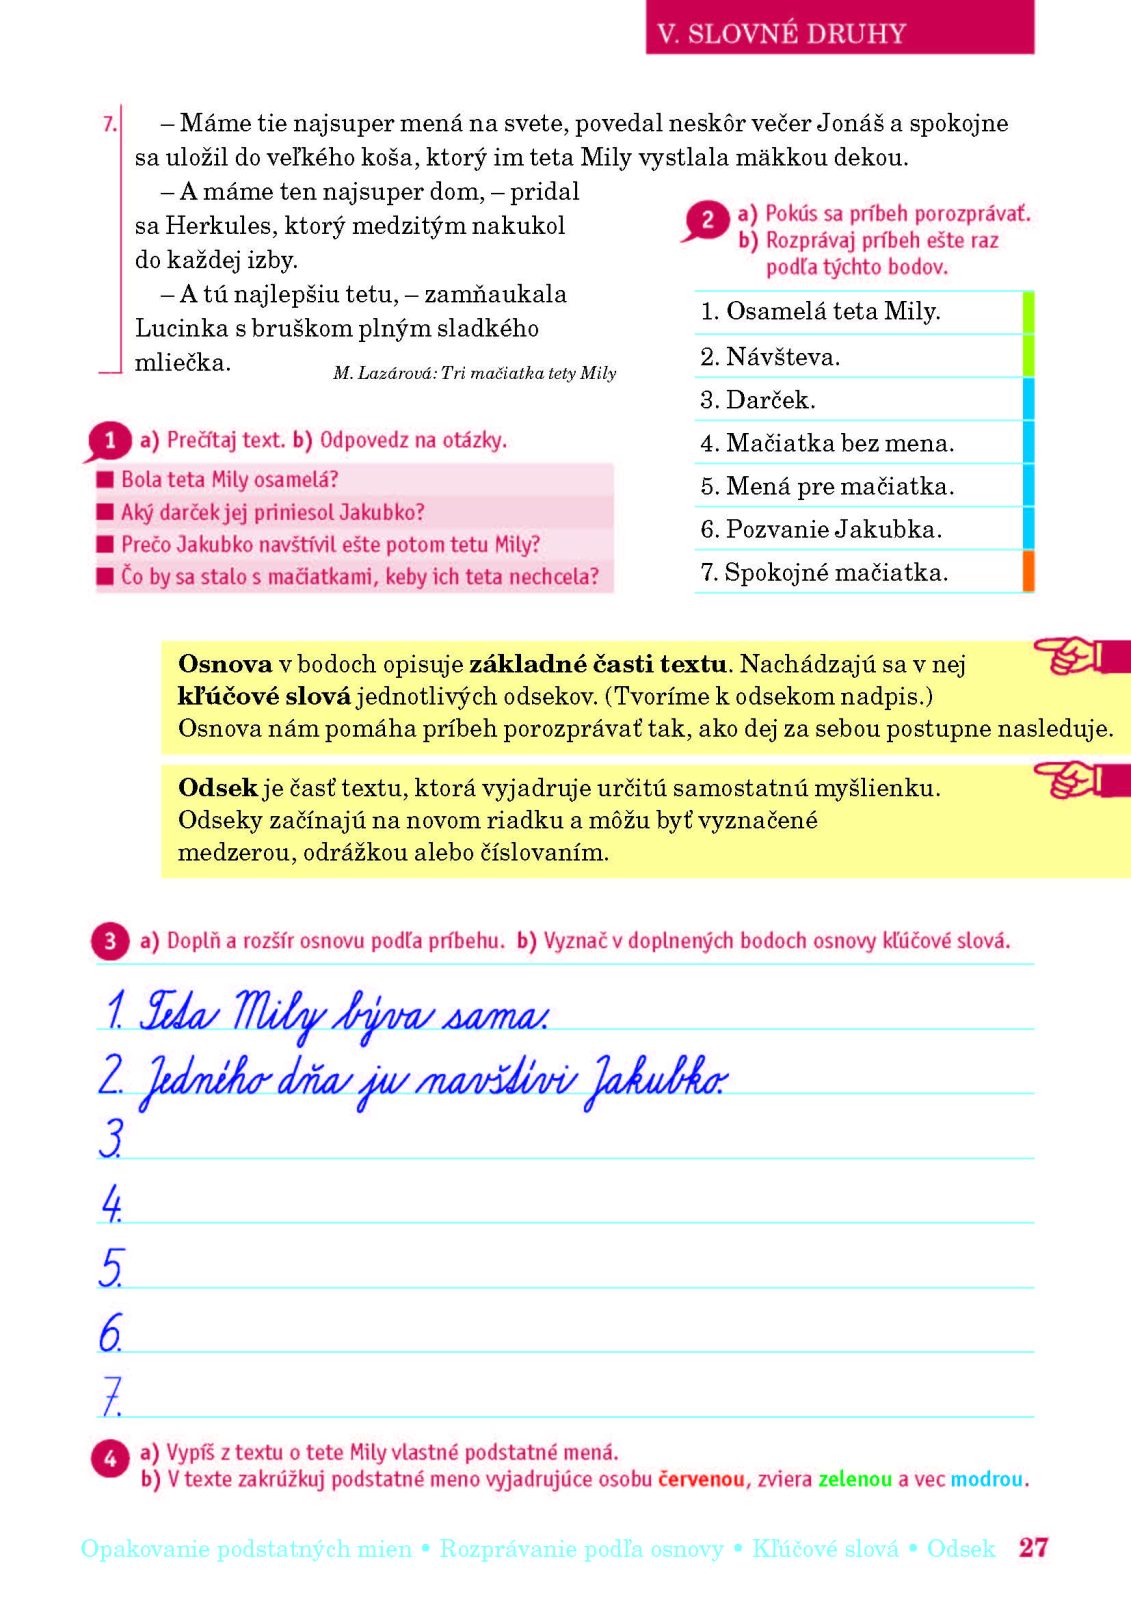 V. SLOVNÉ DRUHY
7. – Máme tie najsuper mená na svete, povedal neskôr večer Jonáš a spokojne
sa uložil do veľkého koša, ktorý im teta Mily vystlala mäkkou dekou.
– A máme ten najsuper dom, – pridal
sa Herkules, ktorý medzitým nakukol
do každej izby.
– A tú najlepšiu tetu, – zamňaukala
Lucinka s bruškom plným sladkého
mliečka.
M. Lazárová: Tri mačiatka tety Mily
1 a) Prečítaj text. b) Odpovedz na otázky.
■ Bola teta Mily osamelá?
■ Aký darček jej priniesol Jakubko?
■ Prečo Jakubko navštívil ešte potom tetu Mily?
■ Čo by sa stalo s mačiatkami, keby ich teta nechcela?
2 a) Pokús sa príbeh porozprávať.
b) Rozprávaj príbeh ešte raz
podľa týchto bodov.
1. Osamelá teta Mily.
2. Návšteva.
3. Darček.
4. Mačiatka bez mena.
5. Mená pre mačiatka.
6. Pozvanie Jakubka.
7. Spokojné mačiatka.
Osnova v bodoch opisuje základné časti textu. Nachádzajú sa v nej
kľúčové slová jednotlivých odsekov. (Tvoríme k odsekom nadpis.)
Osnova nám pomáha príbeh porozprávať tak, ako dej za sebou postupne nasleduje.
Odsek je časť textu, ktorá vyjadruje určitú samostatnú myšlienku.
Odseky začínajú na novom riadku a môžu byť vyznačené
medzerou, odrážkou alebo číslovaním.
3 a) Doplň a rozšír osnovu podľa príbehu. b) Vyznač v doplnených bodoch osnovy kľúčové slová.
1. Teta Mily býva sama.
2. Jedného dňa ju navštívi Jakubko.
3.
4.
5.
6.
7.
4 a) Vypíš z textu o tete Mily vlastné podstatné mená.
b) V texte zakrúžkuj podstatné meno vyjadrujúce osobu červenou, zviera zelenou a vec modrou.
Opakovanie podstatných mien • Rozprávanie podľa osnovy • Kľúčové slová • Odsek 27